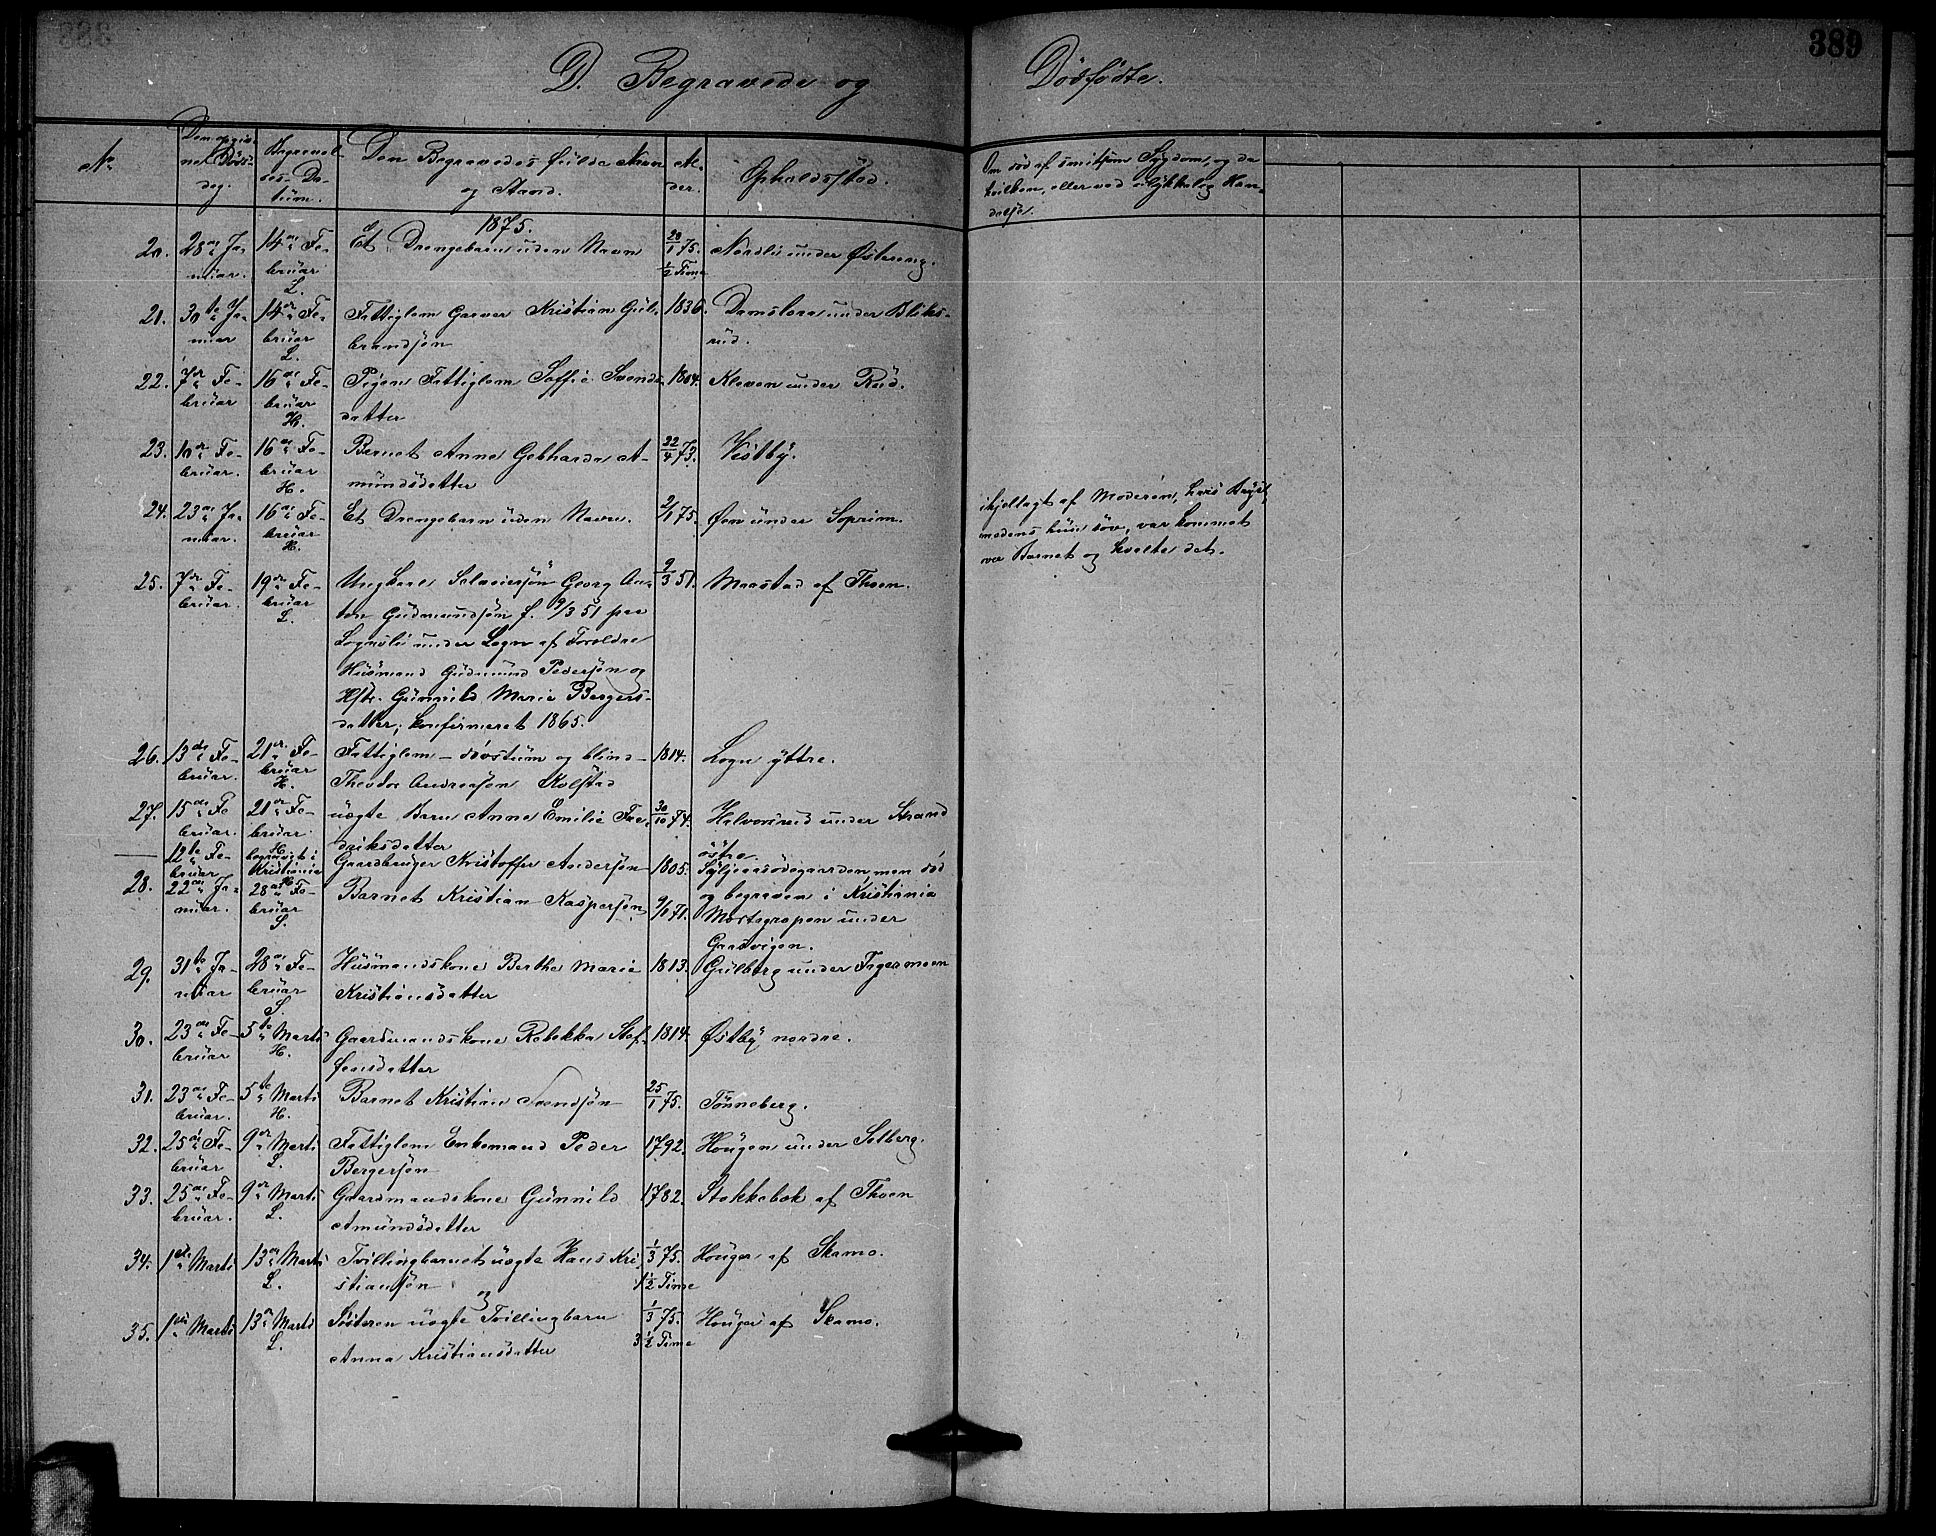 389
D. Begravede og Dødfødte.
No Den opgiv-
ne Døds-
dag. Begravel-
ses-Da-
tum. Den Begravedes fulde Navn
og Stand. Al-
der. Opholdssted. Om død af smitsom Sygdom, og da
hvilken, eller ved ulykkelig Hæn-
delse.
1875.
20. 28de Ja-
nuar. 14de Fe-
bruar
L. Et Drengebarn uden Navn 28/1 75.
1/2 Time Nordli under Østereng.
21. 30te Ja-
nuar 14de Fe-
bruar
L. Fattiglem Garver Kristian Gul-
brandsøn 1836. Damslora under Bliks-
rud.
22. 7de Fe-
bruar 16de Fe-
bruar
H. Pigen Fattiglem Soffie Svends-
datter 1804. Kleven under Rud.
23. 10de Fe-
bruar. 16de Fe-
bruar
H. Barnet Anne Gebharda A-
mundsdatter 22/4 73. Vestby.
24. 23de Ja-
nuar. 16de Fe-
bruar
H. Et Drengebarn uden Navn. 2/1 75. Øen under Soprim. ihjellagt af Moderen, hvis Bryst,
medens hun sov, var kommet
over Barnet og kvalte det.
25. 7de Fe-
bruar. 19de Fe-
bruar
L. Ungkarl Selveiersøn Georg An-
ton Gudmundsøn f. 9/3 51 paa
Lognsli under Logn af Forældre
Husmand Gudmund Pedersøn og
Hstr. Gunnild Marie Bergers-
datter; konfirmeret 1865. 9/3 51. Maastad af Thoen.
26. 13de Fe-
bruar. 21de Fe-
bruar
H. Fattiglem – døvstum og blind –
Theodor Andreasøn Kolstad 1814. Logn yttre.
27. 15de Fe
bruar. 21de Fe-
bruar.
H. uægte Barn Anne Emilie Fre-
driksdatter 30/10 74. Halvorsrud under Strand
østre
— 12te Fe-
bruar begravet i
Kristiania Gaardbruger Kristoffer Andersøn 1805. Syljuaasødegaarden, men død
og begraven i Kristiania
28. 22de Ja-
nuar. 28de Fe-
bruar
S. Barnet Kristian Kaspersøn 9/1 71. Mortegropen under
Gaardvigen.
29. 31te Ja-
nuar 28de Fe-
bruar
S. Husmandskone Berthe Marie
Kristiansdatter 1813. Gulberg under Fagermoen
30. 23de Fe-
bruar 5te Marts
H. Gaardmandskone Rebekka Stef-
fensdatter 1814. Østby nordre.
31. 23de Fe-
bruar. 5te Marts
H. Barnet Kristian Svendsøn 25/1 75. Tønneberg.
32. 25de Fe-
bruar 9de Marts
L. Fattiglem Enkemand Peder
Bergersøn 1792. Hougen under Solberg.
33. 25de Fe-
bruar. 9de Marts
L. Gaardmandskone Gunnild
Amundsdatter 1782. Stokkebæk af Thoen
34. 1ste Marts 13de Marts
L. Tvillingbarnet uægte Hans Kri-
stiansøn
og 1/3 75.
1 1/2 Time Houger af Skamo.
35. 1ste Marts 13de Marts
L. Søsteren uægte Tvillingbarn
Anna Kristiansdatter 1/3 75.
3 1/2 Time Houger af Skamo.